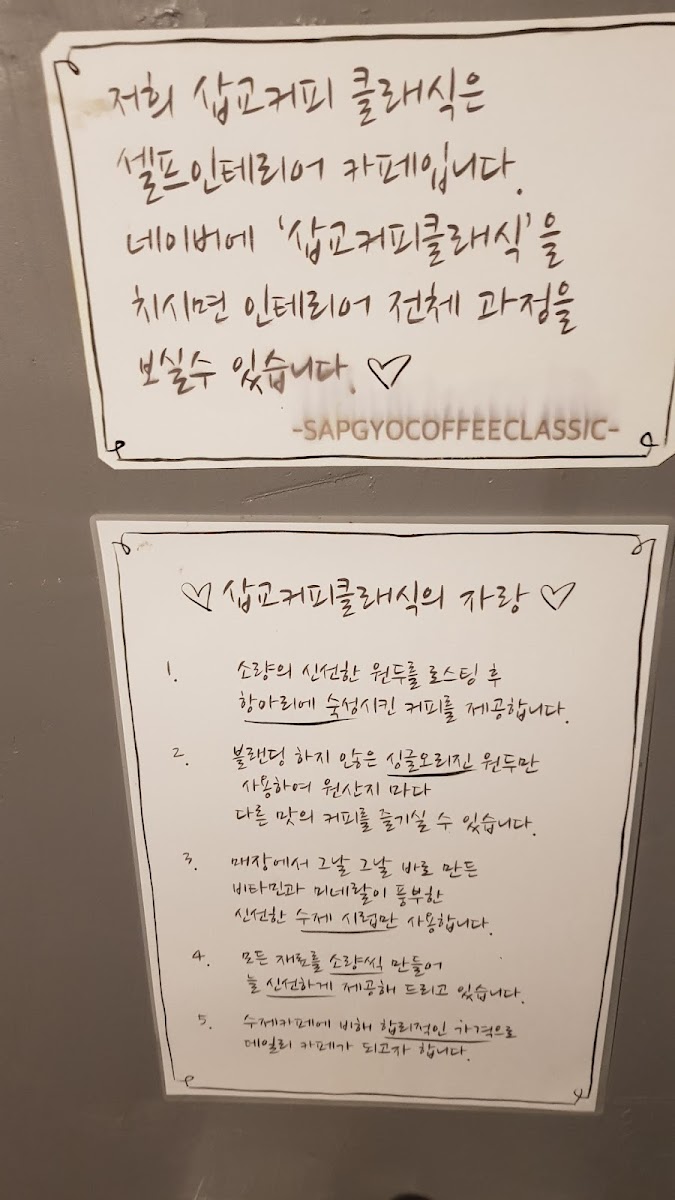 저희 삽교커피 클래식은
셀프인테리어 카페입니다.
네이버에 '삽교커피클래식'을
치시면 인테리어 전체 과정을
보실수 있습니다. ♡
-SAPGYOCOFFEECLASSIC-
♡ 삽교커피클래식의 자랑 ♡
1. 소량의 신선한 원두를 로스팅 후
항아리에 숙성시킨 커피를 제공합니다.
2. 블랜딩 하지 않은 싱글오리진 원두만
사용하여 원산지 마다
다른 맛의 커피를 즐기실 수 있습니다.
3. 매장에서 그날 그날 바로 만든
비타민과 미네랄이 풍부한
신선한 수제 시럽만 사용합니다.
4. 모든 재료를 소량씩 만들어
늘 신선하게 제공해 드리고 있습니다.
5. 수제카페에 비해 합리적인 가격으로
데일리 카페가 되고자 합니다.